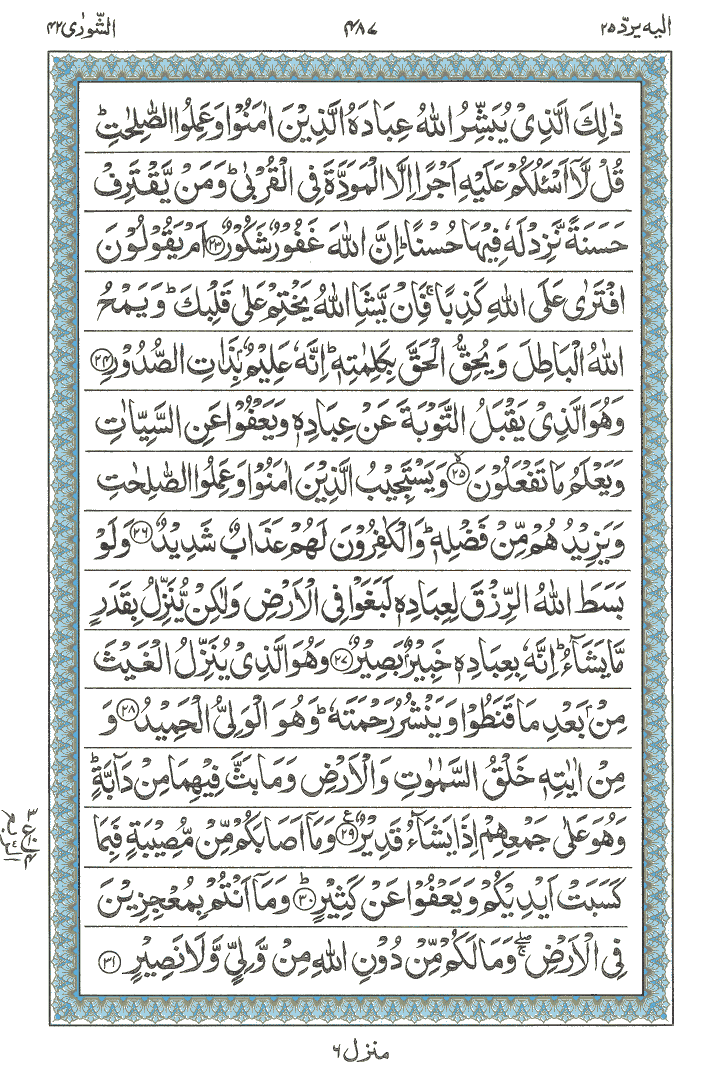 اليه يردّ ٢٥
٤٨٧
الشّورٰى ٤٢
ذٰلِكَ الَّذِىْ يُبَشِّرُ اللّٰهُ عِبَادَهُ الَّذِيْنَ اٰمَنُوْا وَعَمِلُوا الصّٰلِحٰتِؕ
قُلْ لَّاۤ اَسْئَلُكُمْ عَلَيْهِ اَجْرًا اِلَّا الْمَوَدَّةَ فِى الْقُرْبٰىؕ وَمَنْ يَّقْتَرِفْ
حَسَنَةً نَّزِدْ لَهٗ فِيْهَا حُسْنًاؕ اِنَّ اللّٰهَ غَفُوْرٌ شَكُوْرٌ ﴿٢٣﴾ اَمْ يَقُوْلُوْنَ
افْتَرٰى عَلَى اللّٰهِ كَذِبًاۚ فَاِنْ يَّشَاِ اللّٰهُ يَخْتِمْ عَلٰى قَلْبِكَؕ وَيَمْحُ
اللّٰهُ الْبَاطِلَ وَيُحِقُّ الْحَقَّ بِكَلِمٰتِهٖؕ اِنَّهٗ عَلِيْمٌۢ بِذَاتِ الصُّدُوْرِ ﴿٢٤﴾
وَهُوَ الَّذِىْ يَقْبَلُ التَّوْبَةَ عَنْ عِبَادِهٖ وَيَعْفُوْا عَنِ السَّيِّاٰتِ
وَيَعْلَمُ مَا تَفْعَلُوْنَ ﴿٢٥﴾ۙ وَيَسْتَجِيْبُ الَّذِيْنَ اٰمَنُوْا وَعَمِلُوا الصّٰلِحٰتِ
وَيَزِيْدُهُمْ مِّنْ فَضْلِهٖؕ وَالْكٰفِرُوْنَ لَهُمْ عَذَابٌ شَدِيْدٌ ﴿٢٦﴾ وَلَوْ
بَسَطَ اللّٰهُ الرِّزْقَ لِعِبَادِهٖ لَبَغَوْا فِى الْاَرْضِ وَلٰكِنْ يُّنَزِّلُ بِقَدَرٍ
مَّا يَشَآءُؕ اِنَّهٗ بِعِبَادِهٖ خَبِيْرٌۢ بَصِيْرٌ ﴿٢٧﴾ وَهُوَ الَّذِىْ يُنَزِّلُ الْغَيْثَ
مِنْۢ بَعْدِ مَا قَنَطُوْا وَيَنْشُرُ رَحْمَتَهٗؕ وَهُوَ الْوَلِىُّ الْحَمِيْدُ ﴿٢٨﴾ وَ
مِنْ اٰيٰتِهٖ خَلْقُ السَّمٰوٰتِ وَالْاَرْضِ وَمَا بَثَّ فِيْهِمَا مِنْ دَآبَّةٍؕ
وَهُوَ عَلٰى جَمْعِهِمْ اِذَا يَشَآءُ قَدِيْرٌ ﴿٢٩﴾ۧ وَمَاۤ اَصَابَكُمْ مِّنْ مُّصِيْبَةٍ فَبِمَا
كَسَبَتْ اَيْدِيْكُمْ وَيَعْفُوْا عَنْ كَثِيْرٍؕ ﴿٣٠﴾ وَمَاۤ اَنْتُمْ بِمُعْجِزِيْنَ
فِى الْاَرْضِۖۚ وَمَا لَكُمْ مِّنْ دُوْنِ اللّٰهِ مِنْ وَّلِىٍّ وَّلَا نَصِيْرٍ ﴿٣١﴾
منزل ٦